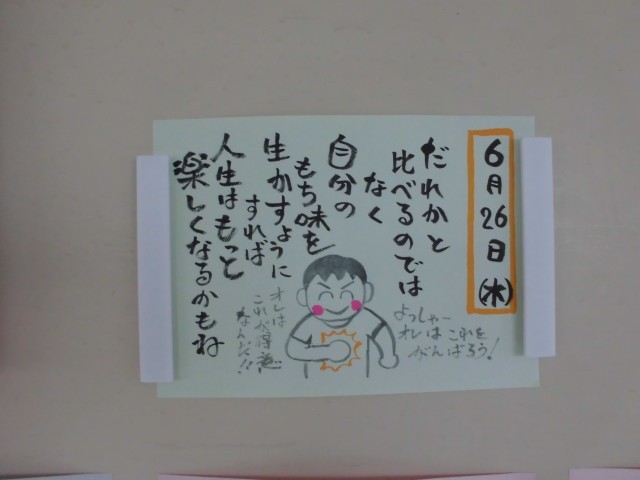 6月26日(水)
だれかと
比べるのでは
なく
自分の
もち味を
生かすように
すれば
人生はもっと
楽しくなるかもね
よっしゃー
オレはこれを
がんばろう!
オレは
これが得意
なんだ!!